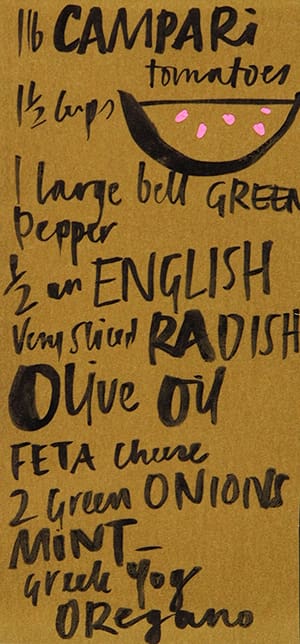 1lb CAMPARi
tomatoes
1½ Cups
1 large bell GREEN
Pepper
½ an ENGLISH
Very Sliced RADISH
Olive Oil
FETA Cheese
2 Green ONIONS
MiNT_
Greek Yog
ORegano